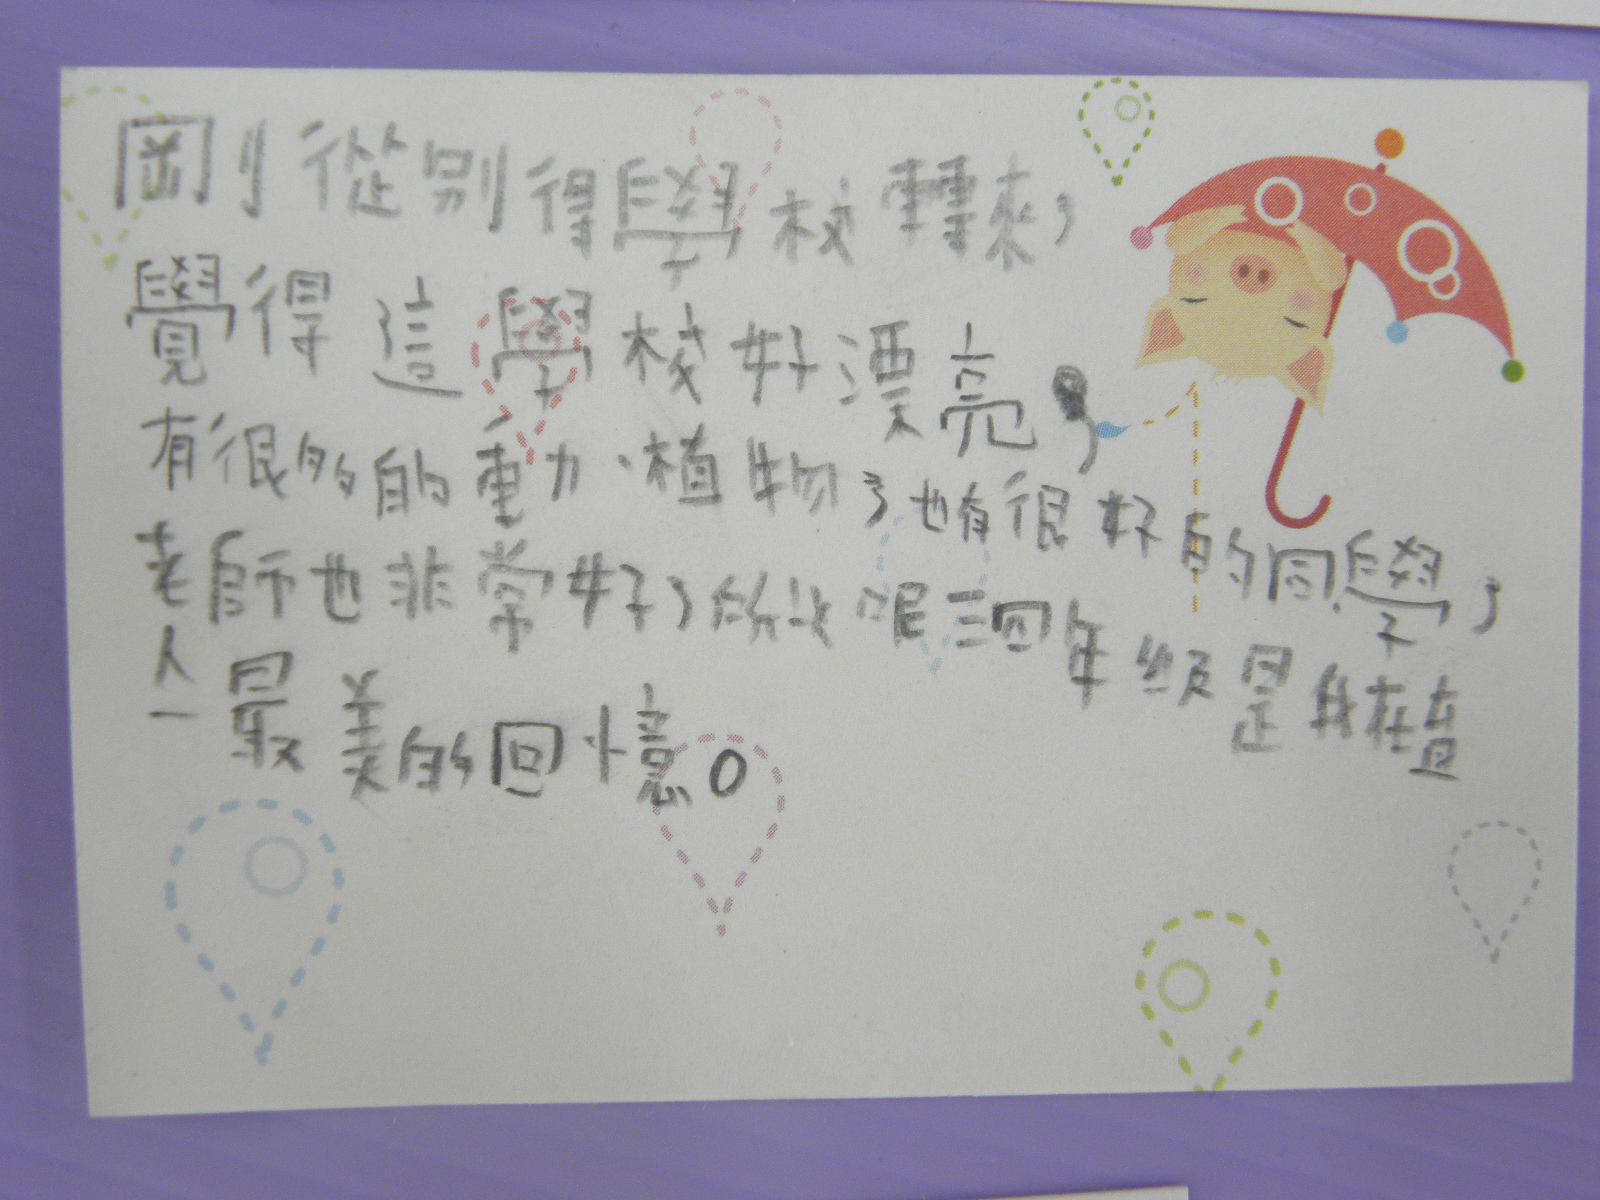 剛從別得學校轉來，
覺得這學校好漂亮，
有很多的動、植物，也有很好的同學，
老師也非常好，所以呢三四年級是我在育
人一最美的回憶。